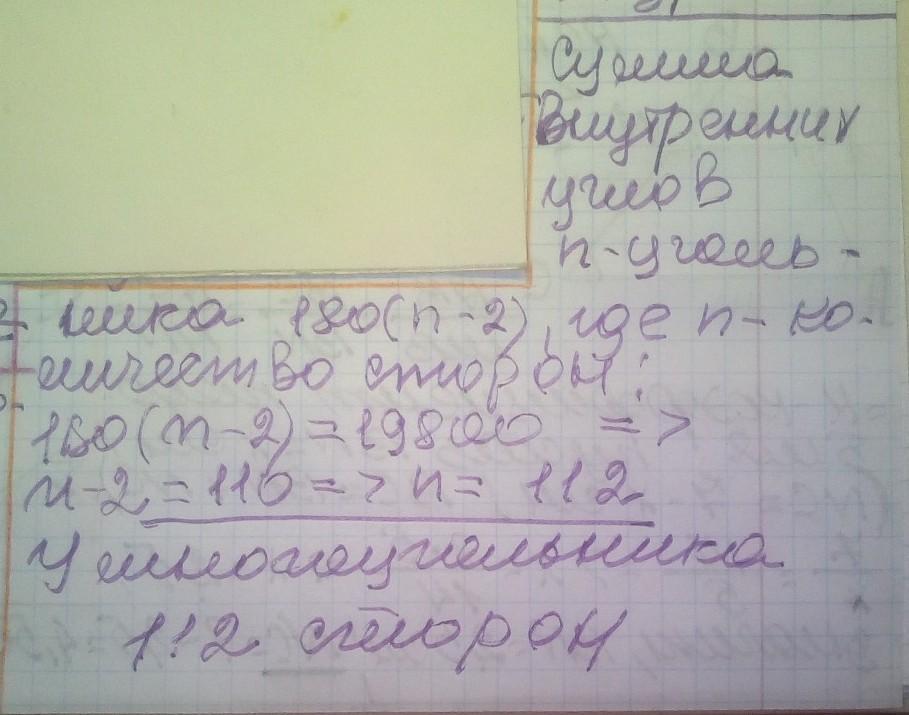 Сумма
внутренних
углов
n-уголь-
ника 180(n-2), где n - ко-
личество сторон:
180(n-2)=19800 =>
n-2=110=> n= 112
У многоугольника
112 сторон